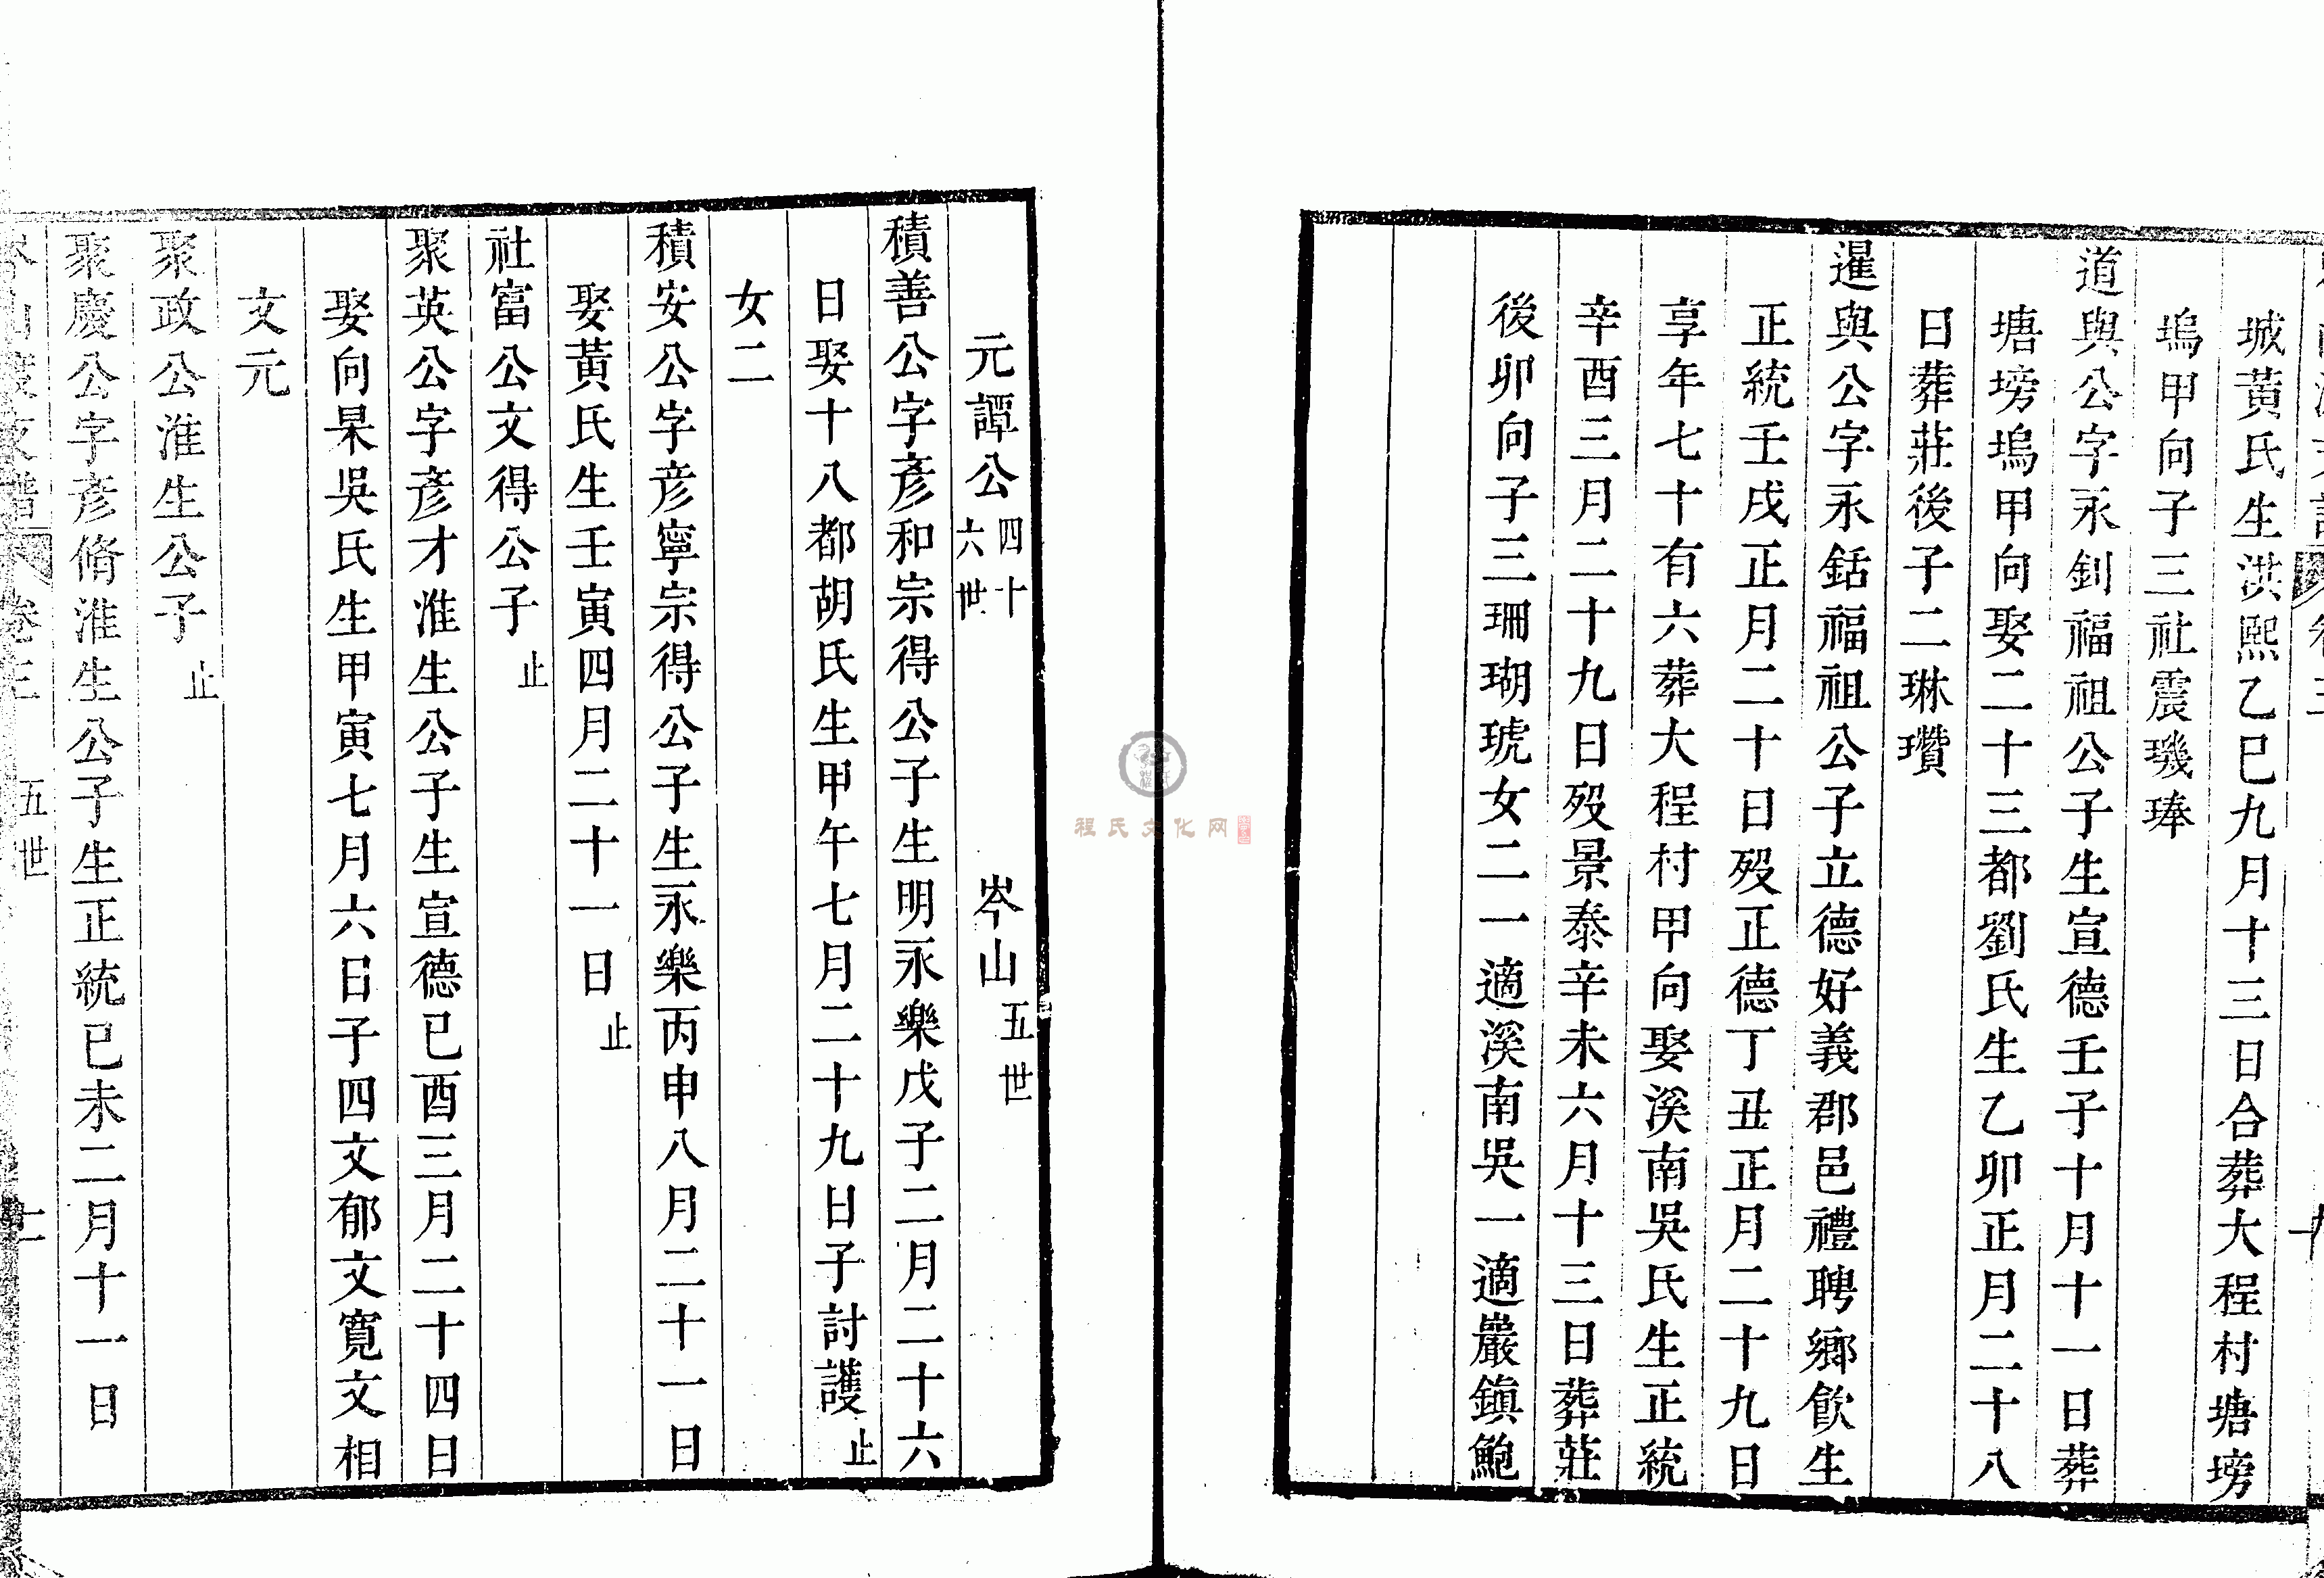 城黃氏生洪熙乙巳九月十三日合葬大程村塘塝
塢甲向子三社震璣琫
道與公字永釗福祖公子生宣德壬子十月十一日葬
塘塝塢甲向娶二十三都劉氏生乙卯正月二十八
日葬莊後子二琳瓚
暹與公字永銛福祖公子立德好義郡邑禮聘鄉飲生
正統壬戌正月二十日歿正德丁丑正月二十九日
享年七十有六葬大程村甲向娶溪南吳氏生正統
辛酉三月二十九日歿景泰辛未六月十三日葬莊
後卯向子三珊瑚琥女二一適溪南吳一適巖鎮鮑
程氏文化网
元譚公四十六世 岑山五世
積善公字彥和宗得公子生明永樂戊子二月二十六
日娶十八都胡氏生甲午七月二十九日子討護止
女二
積安公字彥寧宗得公子生永樂丙申八月二十一日
娶黃氏生壬寅四月二十一日止
社富公文得公子止
聚英公字彥才淮生公子生宣德已酉三月二十四日
娶向杲吳氏生甲寅七月六日子四文郁文寬文相
文元
聚政公淮生公子止
聚慶公字彥脩淮生公子生正統已未二月十一日
卷三 五世